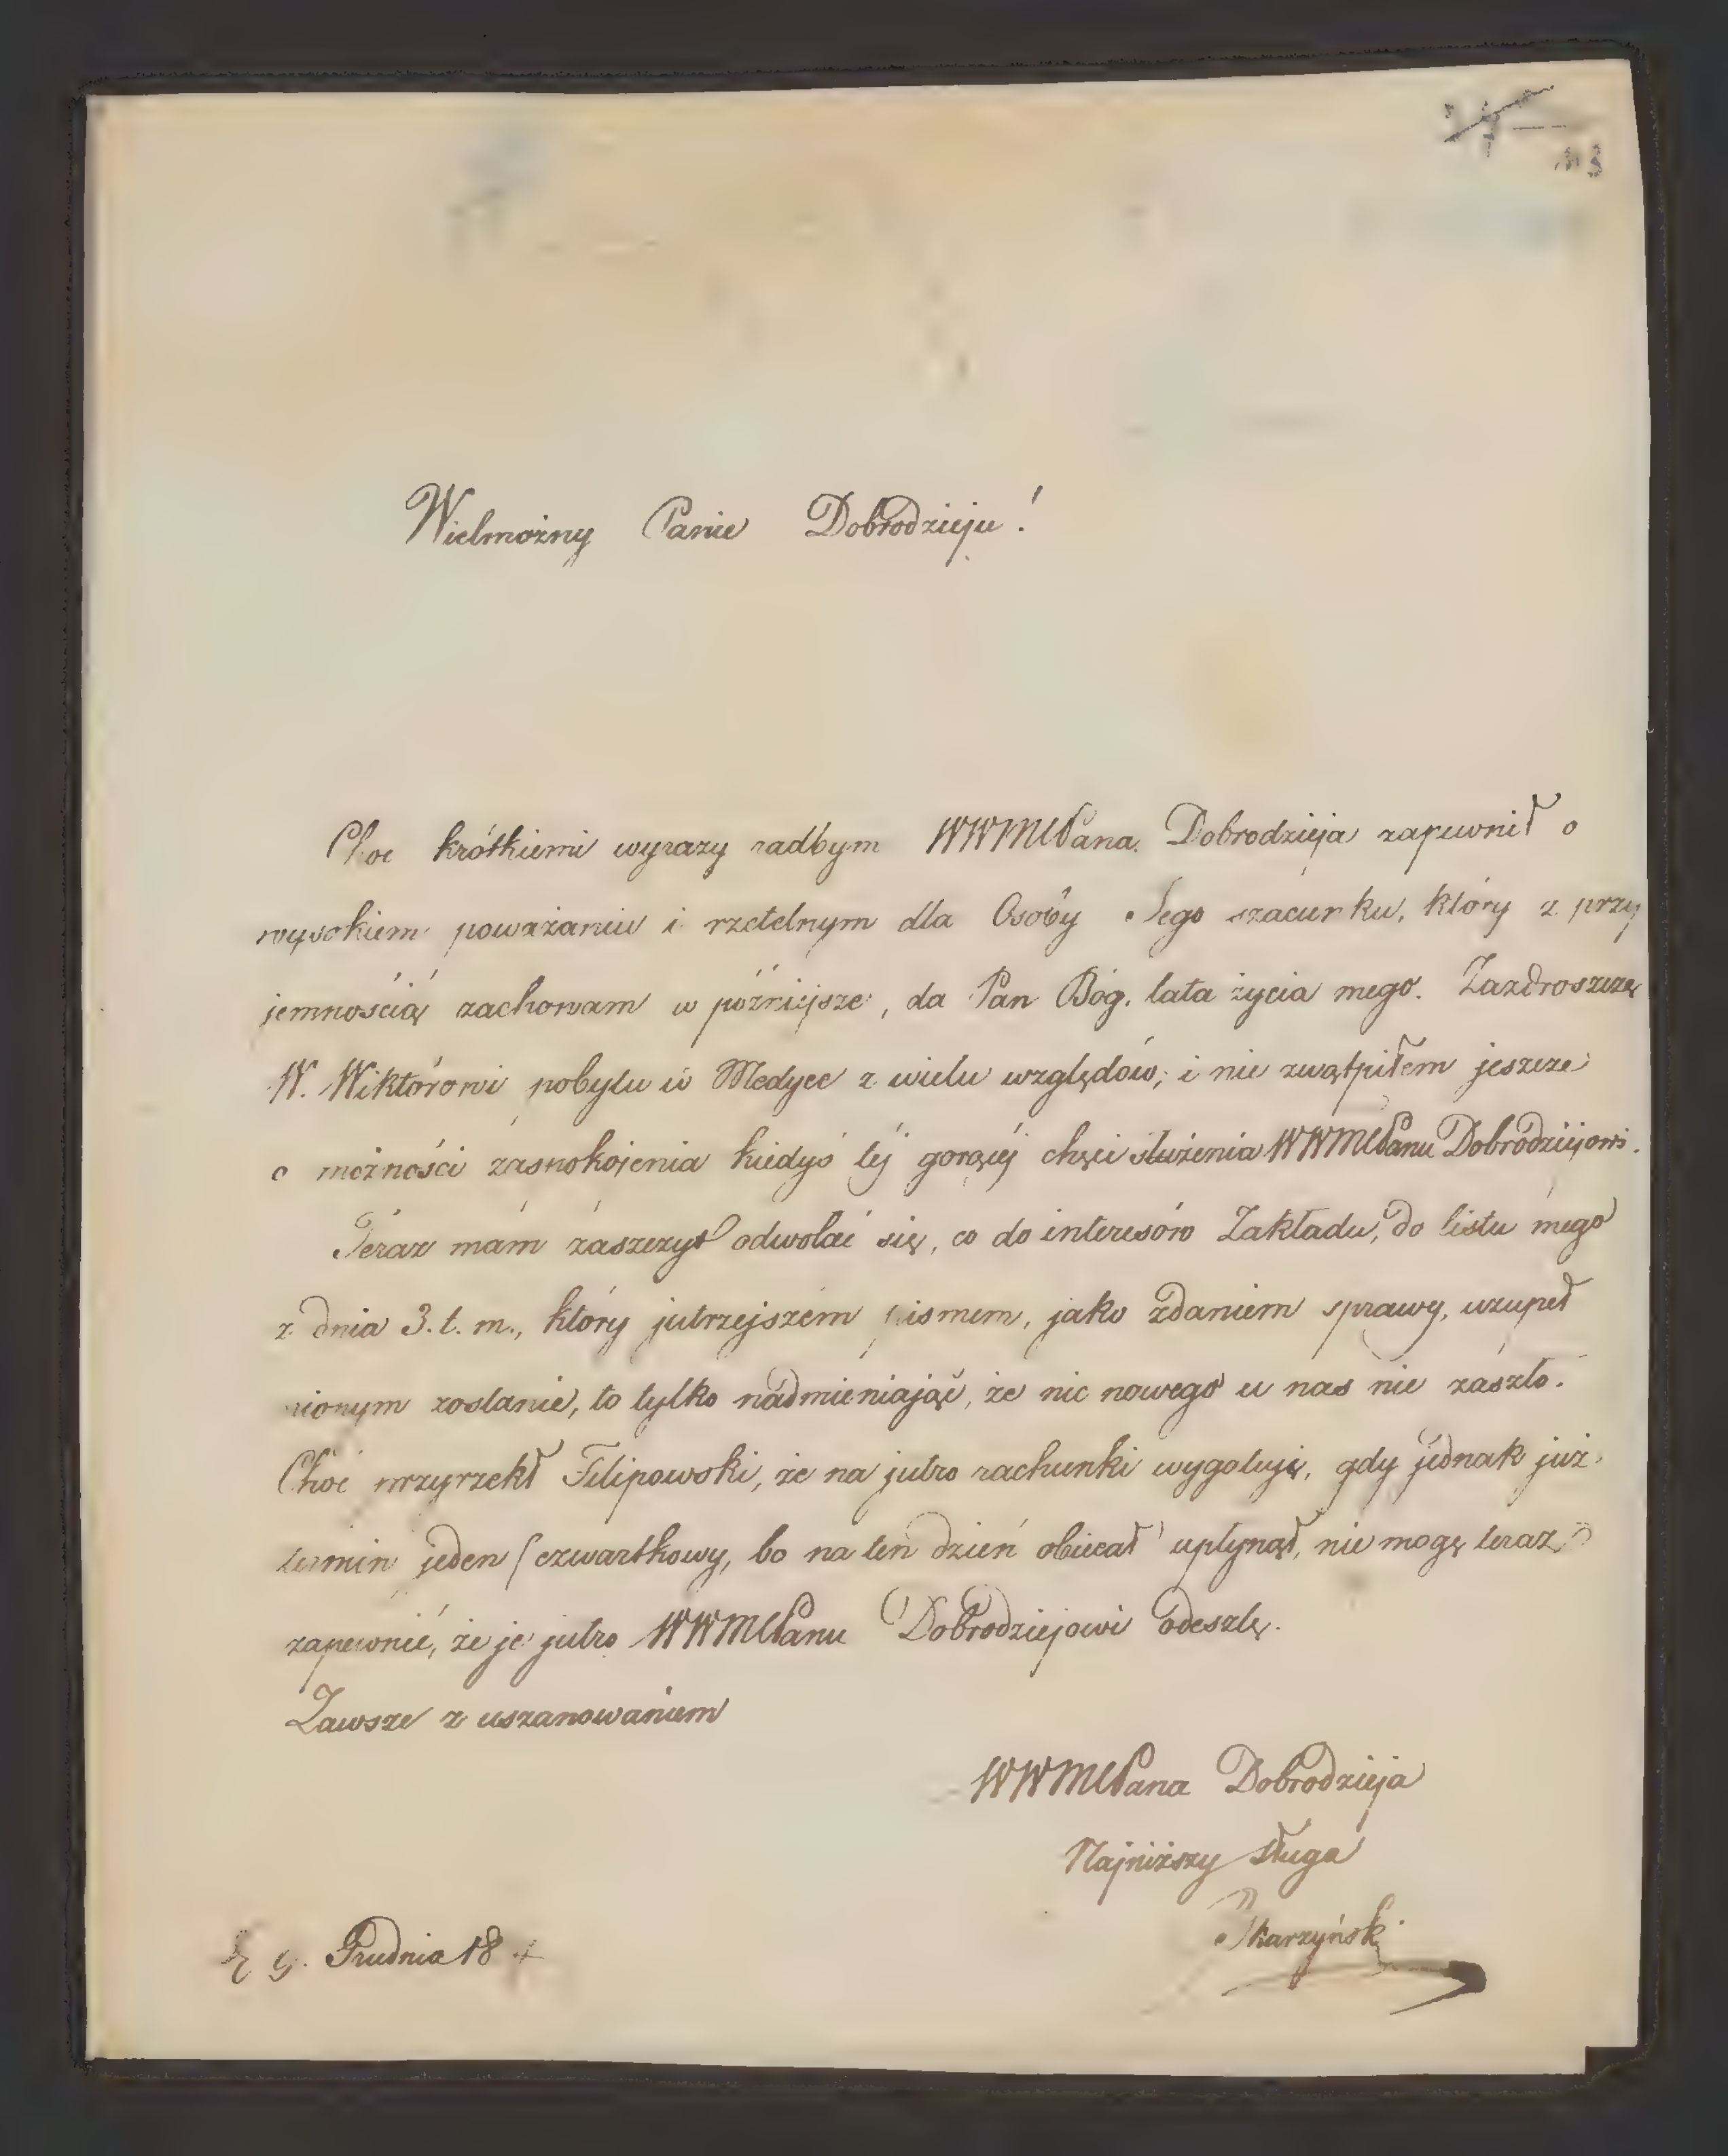 Wielmożny Panie Dobrodzieju!
Choć krótkiemi wyrazy radbym WWMCPana Dobrodzieja zapewnił o
wysokiem poważaniu i rzetelnym dla Osoby Jego szacunku, który z przy
jemnością zachowam w późniejsze, da Pan Bóg, lata życia mego. Zazdroszczę
W. Wiktorowi pobytu w Medyce z wielu względów; i nie zwątpiłem jeszcze
o możności zaspokojenia kiedyś téj gorącéj chęci służenia WWMCPanu Dobrodziejowi.
Teraz mam zaszczyt odwołać się, co do interesów Zakładu, do listu mego
z dnia 3. t. m., który jutrzejszém pismem, jako zdaniem sprawy, uzupeł
nionym zostanie, to tylko nadmieniając, że nic nowego u nas nie zaszło.
Choć przyrzekł Filipowski, że na jutro rachunki wygotuje, gdy jednak już
termin jeden (czwartkowy, bo na ten dzień obiecał) upłynął, nie mogę teraz
zapewnić, że je jutro WWMCPanu Dobrodziejowi odeszlę.
Zawsze z uszanowaniem
WWMCPana Dobrodzieja
Najniższy sługa
Skarzyński
Grudnia 18